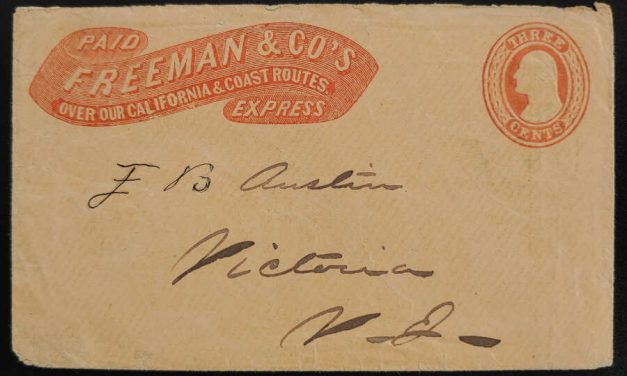 PAID
FREEMAN & CO'S
OVER OUR CALIFORNIA & COAST ROUTES.
EXPRESS
THREE
CENTS
F B Austin
Victoria
V-I-